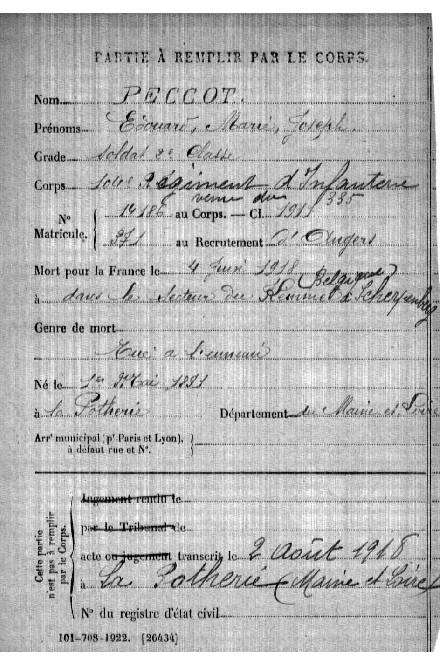 PARTIE À REMPLIR PAR LE CORPS.
Nom PECCOT.
Prénoms Edouard, Marie, Joseph.
Grade soldat 2e Classe
Corps 104e Régiment d'Infanterie
venu du 335
N° Matricule. 14186 au Corps. — Cl. 1911
371 au Recrutement d'Angers
Mort pour la France le 4 Juin 1918
(Belgique)
à dans le secteur du Kemmel à Scherpenberg
Genre de mort
Tué à l'ennemi
Né le 1er Mai 1891
à la Potherie Département de Maine et Loire
Arrt municipal (pr Paris et Lyon), à défaut rue et N°.
Cette partie n'est pas à remplir par le Corps.
Jugement rendu le
par le Tribunal de
acte ou jugement transcrit le 2 août 1918
à La Potherie (Maine et Loire)
N° du registre d'état civil
101-708-1922. [26434]